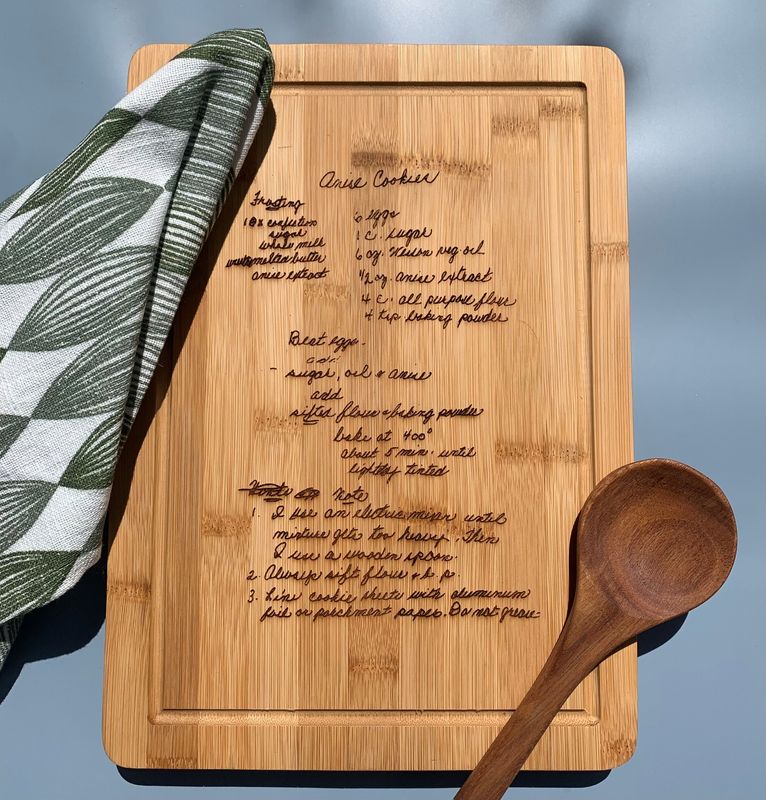 Anise Cookies
Frosting
10x confection
sugar
whole milk
melted butter
anise extract
6 eggs
1 c. sugar
6 oz. Wesson veg oil
1/2 oz. anise extract
4 c. all purpose flour
4 tsp baking powder
Beat eggs.
add
- sugar, oil & anise
add
sifted flour & baking powder
bake at 400°
about 5 min. until
lightly tinted
Note
1. I use an electric mixer until
mixture gets too heavy. Then
I use a wooden spoon.
2. Always sift flour & b. p.
3. Line cookie sheets with aluminum
foil or parchment paper. Do not grease